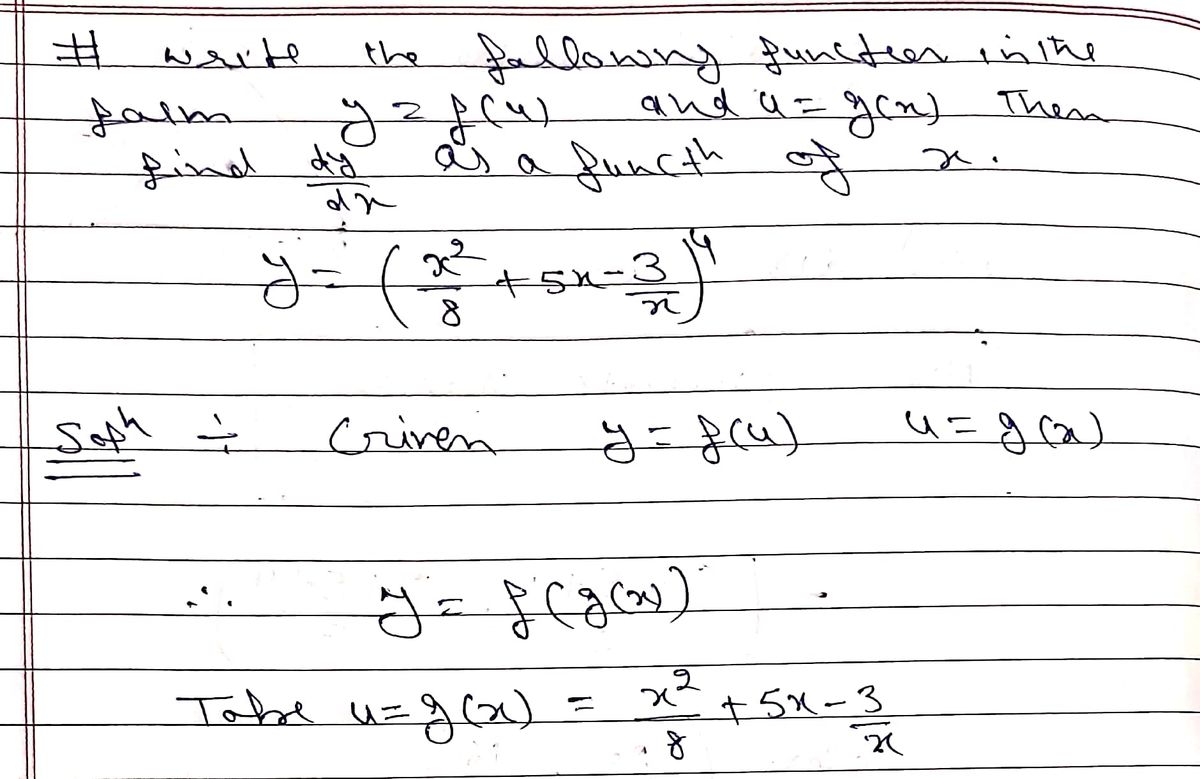 # write the following function in the
form y = f(u) and u = g(x) Then
find dy/dx as a functn of x.
y = (x²/8 + 5x - 3/x)⁴
Soln ÷ Given y = f(u) u = g(x)
∴ y = f(g(x))
Take u = g(x) = x²/8 + 5x - 3/x